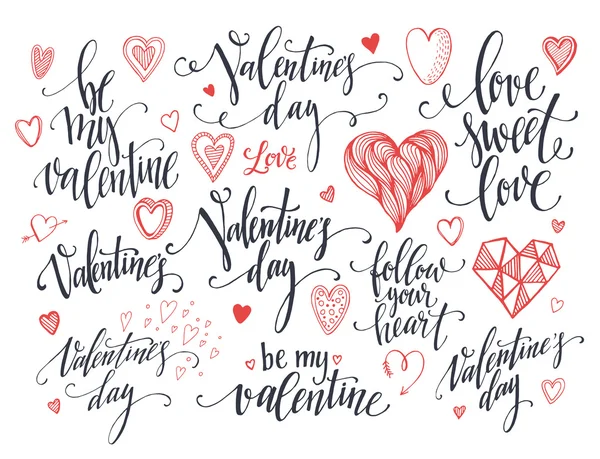 be
my
valentine
Valentine's
day
love
sweet
love
Love
Valentine's
day
Valentine's
follow
your
heart
Valentine's
day
be my
valentine
Valentine's
day